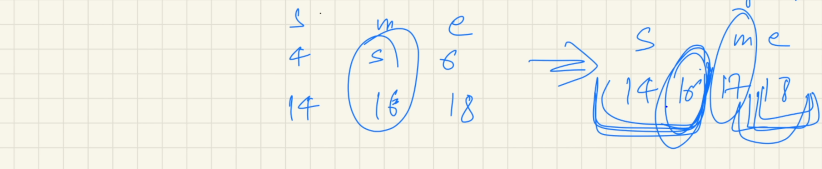 s m e
4 5 6
14 16 18
→
s m e
14 16 17 18